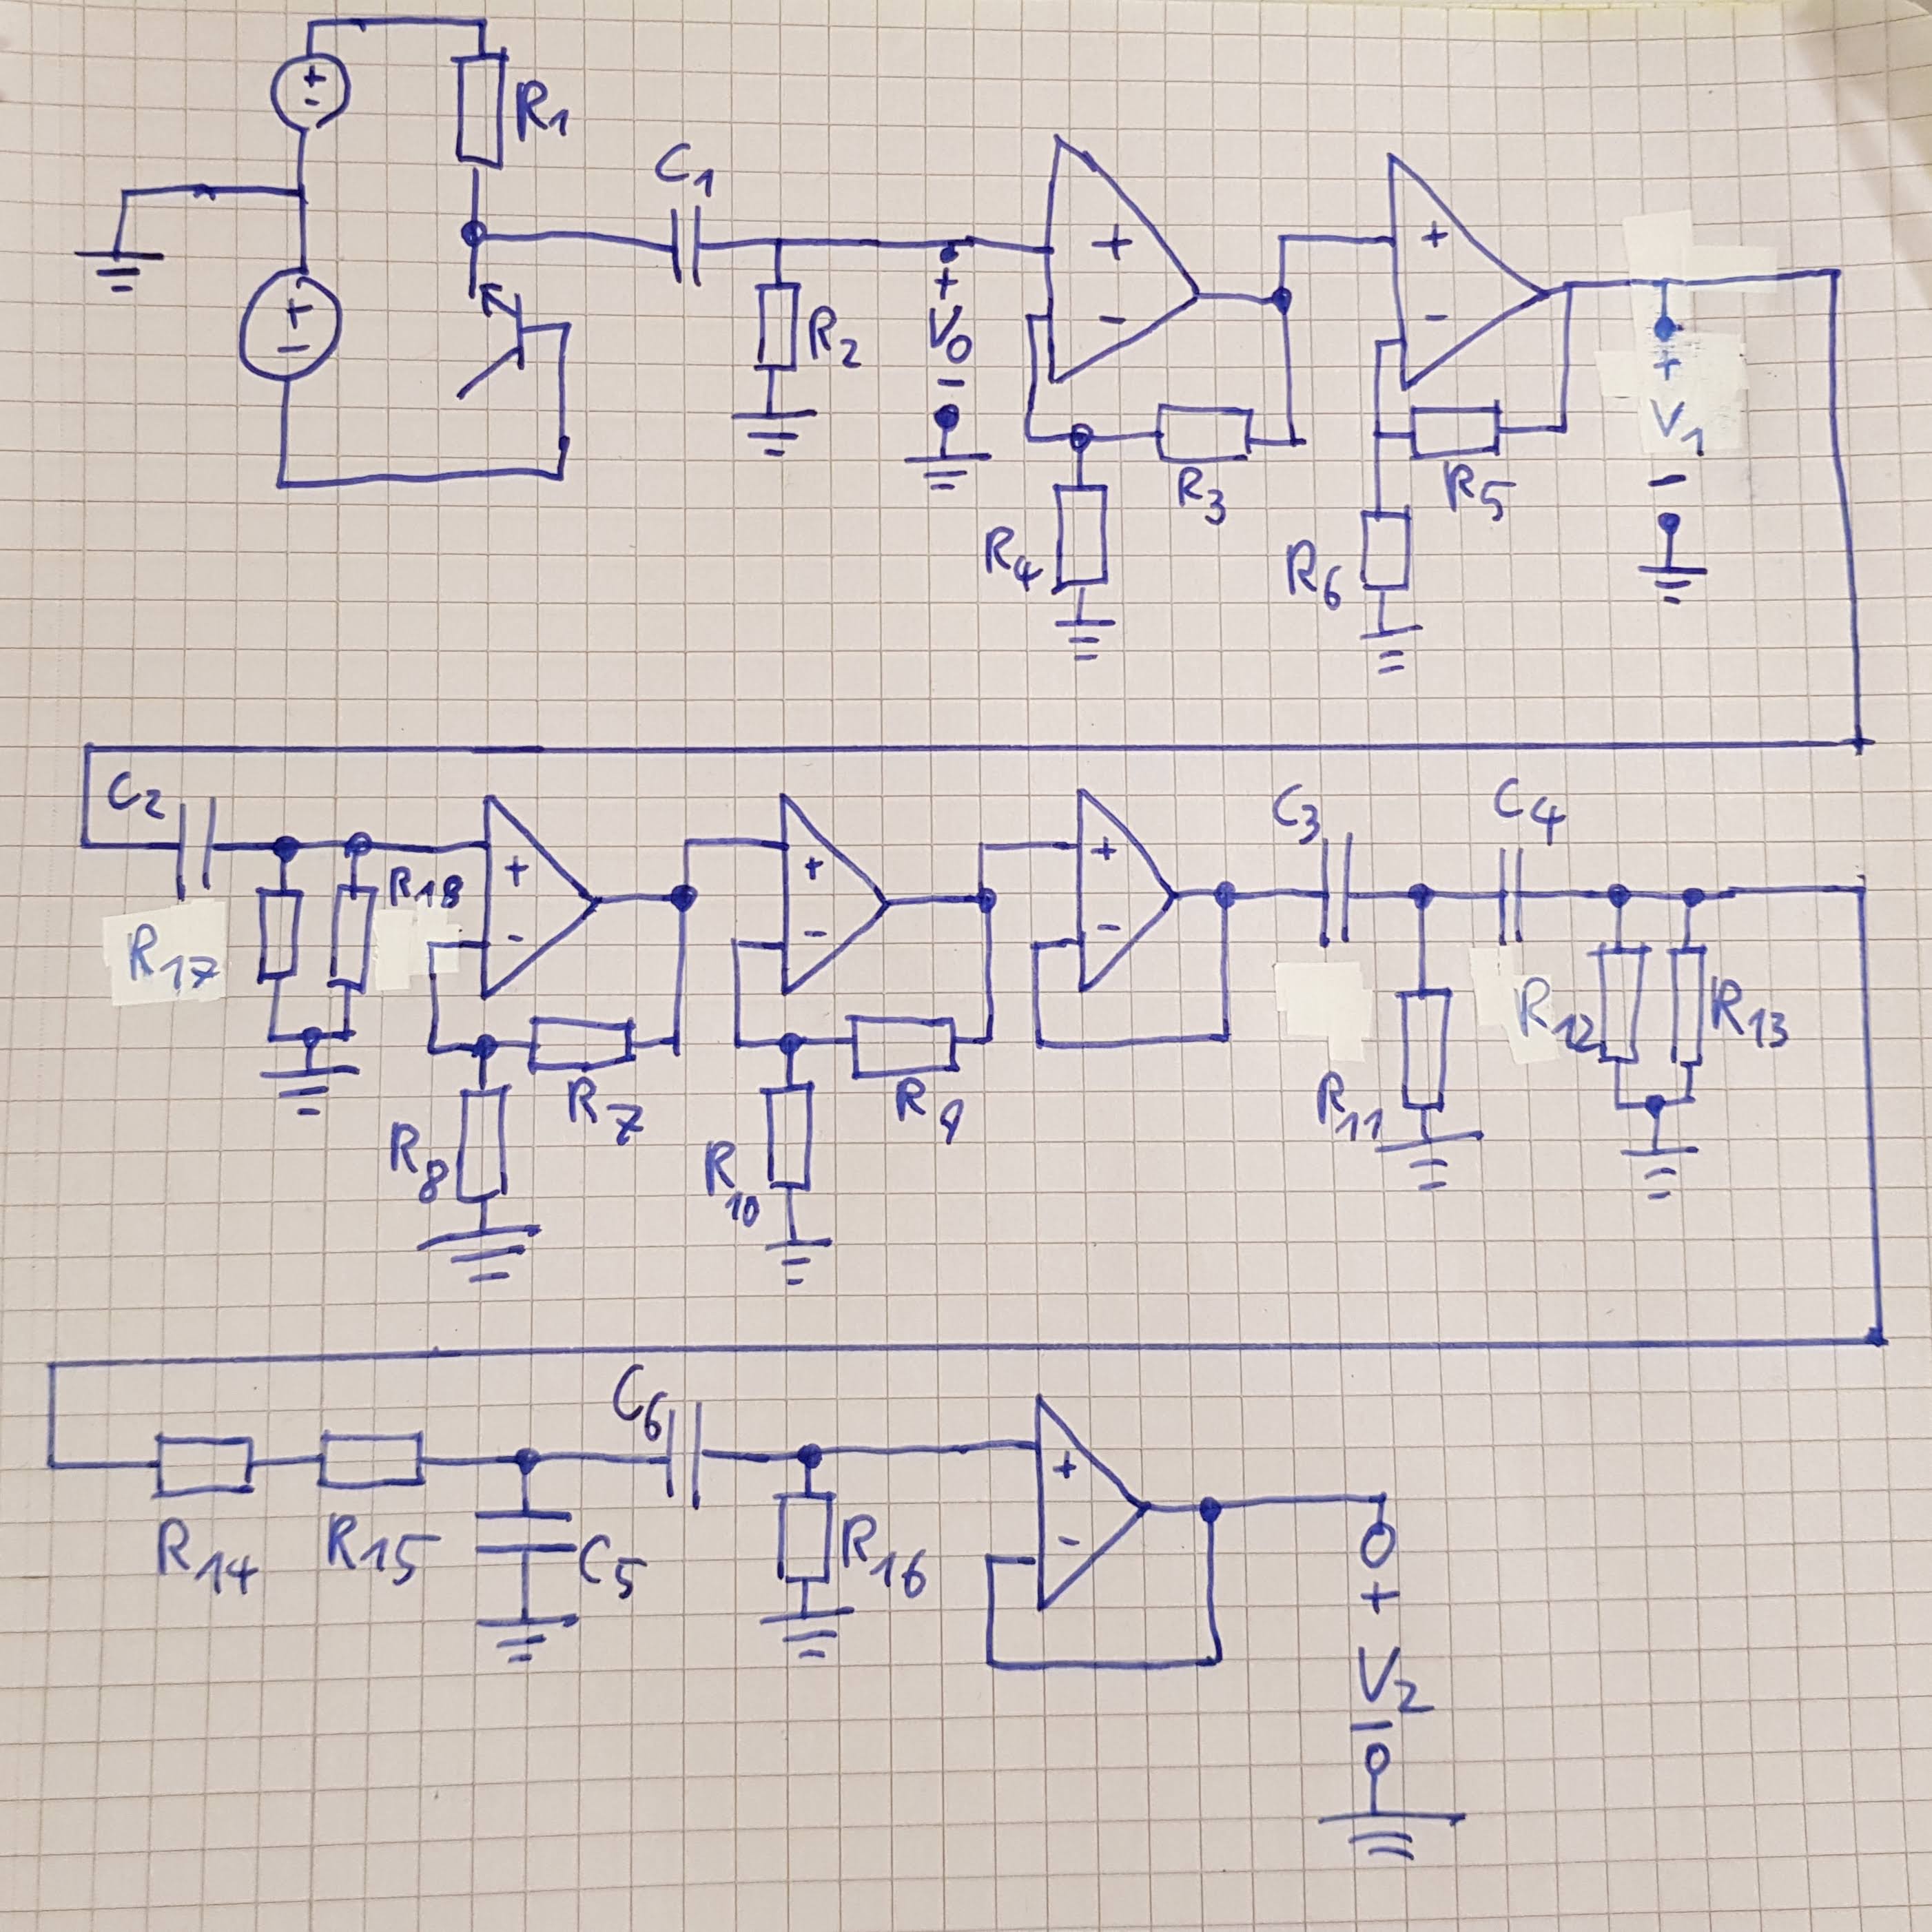 +
-
R1
+
-
C1
R2
+
V0
-
+
-
R3
R4
+
-
R5
R6
+
V1
-
C2
R17
R18
+
-
R7
R8
+
-
R9
R10
+
-
C3
R11
C4
R12
R13
R14
R15
C5
C6
R16
+
-
+
V2
-